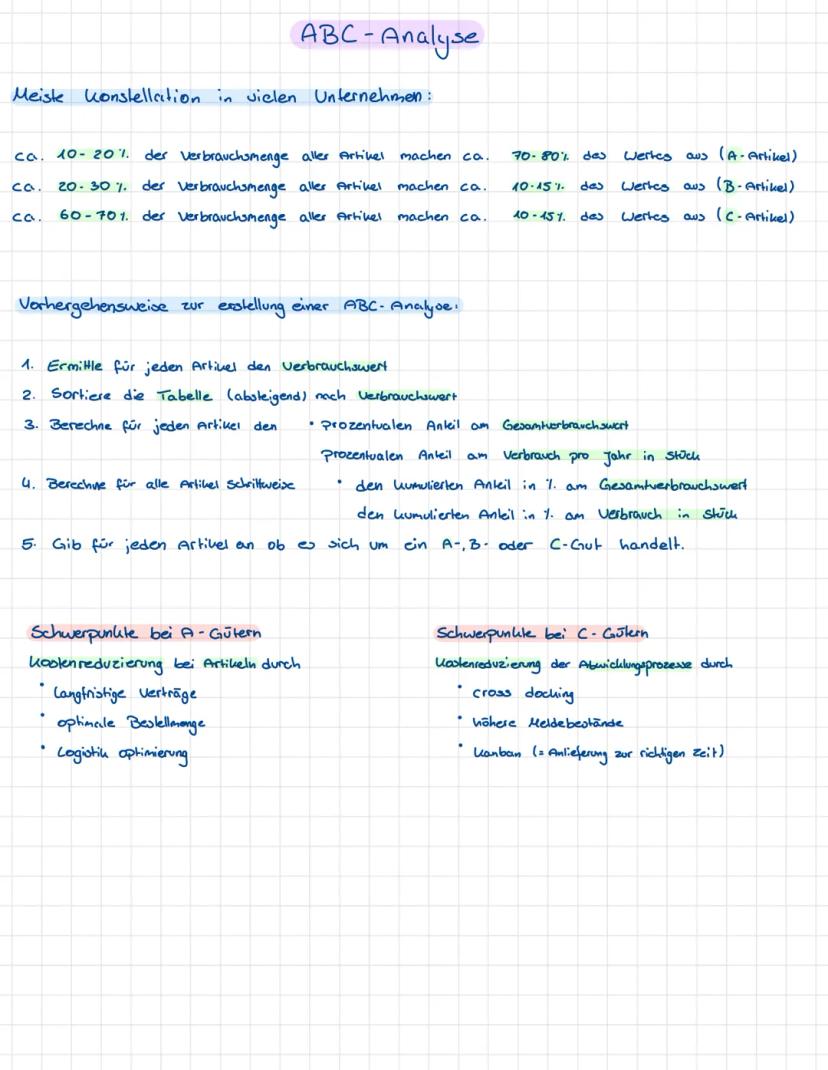 ABC-Analyse
Meiste Konstellation in vielen Unternehmen:
ca. 10-20% der Verbrauchsmenge aller Artikel machen ca. 70-80% des Wertes aus (A-Artikel)
ca. 20-30% der Verbrauchsmenge aller Artikel machen ca. 10-15% des Wertes aus (B-Artikel)
ca. 60-70% der Verbrauchsmenge aller Artikel machen ca. 10-15% des Wertes aus (C-Artikel)
Vorhergehensweise zur erstellung einer ABC-Analyse:
1. Ermittle für jeden Artikel den Verbrauchswert
2. Sortiere die Tabelle (absteigend) nach Verbrauchswert
3. Berechne für jeden Artikel den • Prozentualen Anteil am Gesamtverbrauchswert
Prozentualen Anteil am Verbrauch pro Jahr in Stück
4. Berechne für alle Artikel Schrittweise • den kumulierten Anteil in % am Gesamtverbrauchswert
den kumulierten Anteil in % am Verbrauch in Stück
5. Gib für jeden Artikel an ob es sich um ein A-, B- oder C-Gut handelt.
Schwerpunkte bei A-Gütern
Kostenreduzierung bei Artikeln durch
• langfristige Verträge
• optimale Bestellmenge
• Logistik optimierung
Schwerpunkte bei C-Gütern
Kostenreduzierung der Abwicklungsprozesse durch
• cross docking
• höhere Meldebestände
• Kanban (= Anlieferung zur richtigen Zeit)